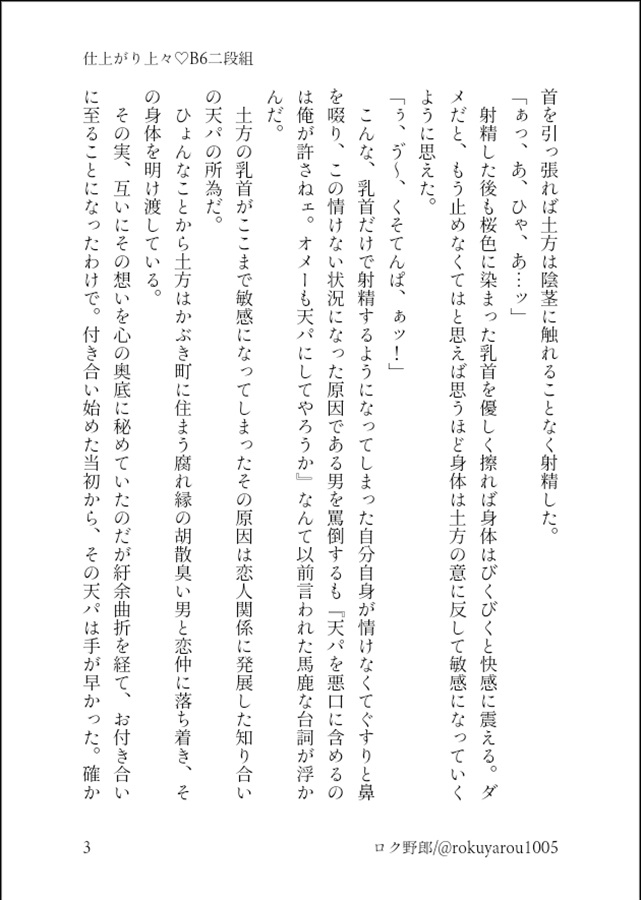 仕上がり上々♡B6二段組
首を引っ張れば土方は陰茎に触れることなく射精した。
「ぁっ、あ、ひゃ、あ…ッ」
射精した後も桜色に染まった乳首を優しく擦れば身体はびくびくと快感に震える。ダ
メだと、もう止めなくてはと思えば思うほど身体は土方の意に反して敏感になっていく
ように思えた。
「ぅ、ゔ〜、くそてんぱ、ぁッ！」
こんな、乳首だけで射精するようになってしまった自分自身が情けなくてぐすりと鼻
を啜り、この情けない状況になった原因である男を罵倒するも『天パを悪口に含めるの
は俺が許さねェ。オメーも天パにしてやろうか』なんて以前言われた馬鹿な台詞が浮か
んだ。
土方の乳首がここまで敏感になってしまったその原因は恋人関係に発展した知り合い
の天パの所為だ。
ひょんなことから土方はかぶき町に住まう腐れ縁の胡散臭い男と恋仲に落ち着き、そ
の身体を明け渡している。
その実、互いにその想いを心の奥底に秘めていたのだが紆余曲折を経て、お付き合い
に至ることになったわけで。付き合い始めた当初から、その天パは手が早かった。確か
3
ロク野郎/@rokuyarou1005